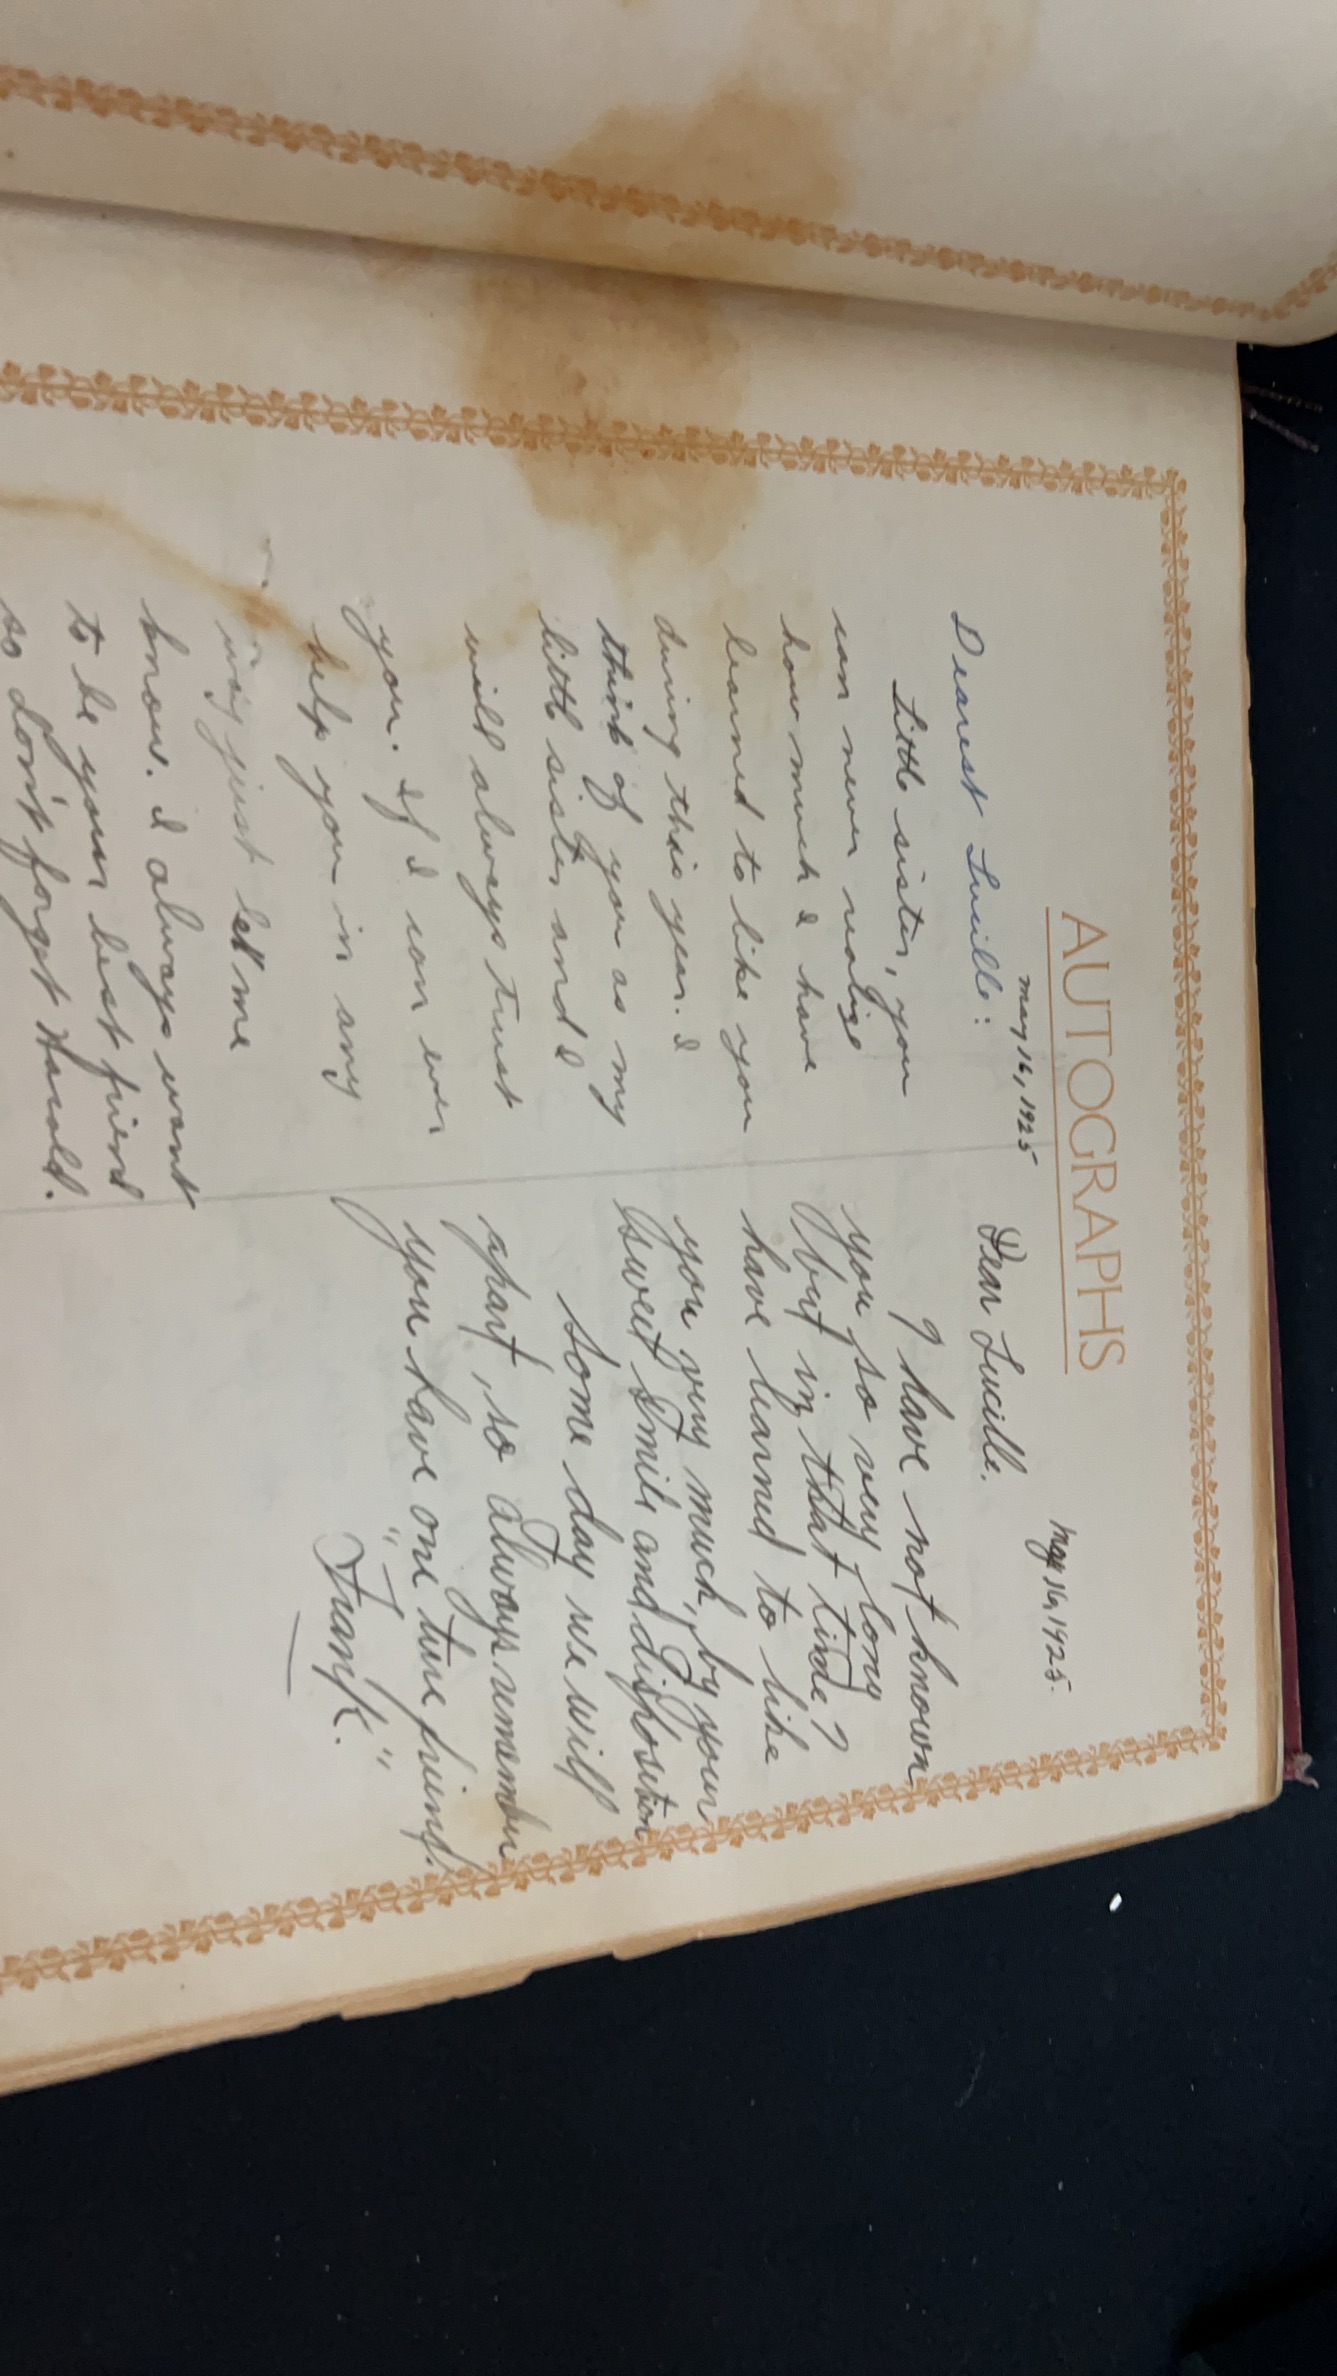 AUTOGRAPHS
May 16, 1925
Dearest Lucille:
Little sister, you
can never realize
how much I have
learned to like you
during this year. I
think of you as my
little sister and I
will always trust
you. If I can ever
help you in any
way just let me
know. I always want
to be your best friend
so don't forget Harold.
May 16, 1925.
Dear Lucille.
I have not known
you so very long
but in that time?
have learned to like
you very much, by your
sweet smile and disposition
Some day we will
apart, so always remember
you have one true friend.
"Frank."